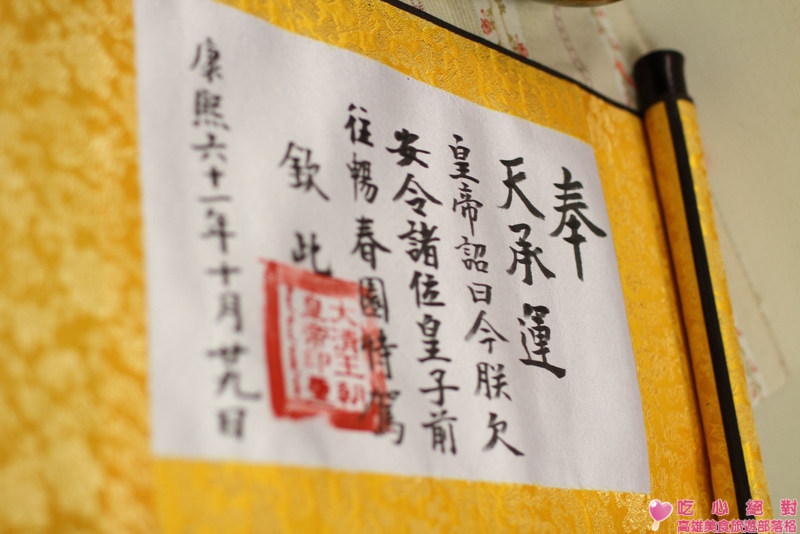 奉
天承運
皇帝詔曰今朕欠
安令諸位皇子前
往暢春園侍駕
欽此
康熙六十一年十月廿九日
大清王朝
皇帝印璽
吃心絕對
高雄美食旅遊部落格